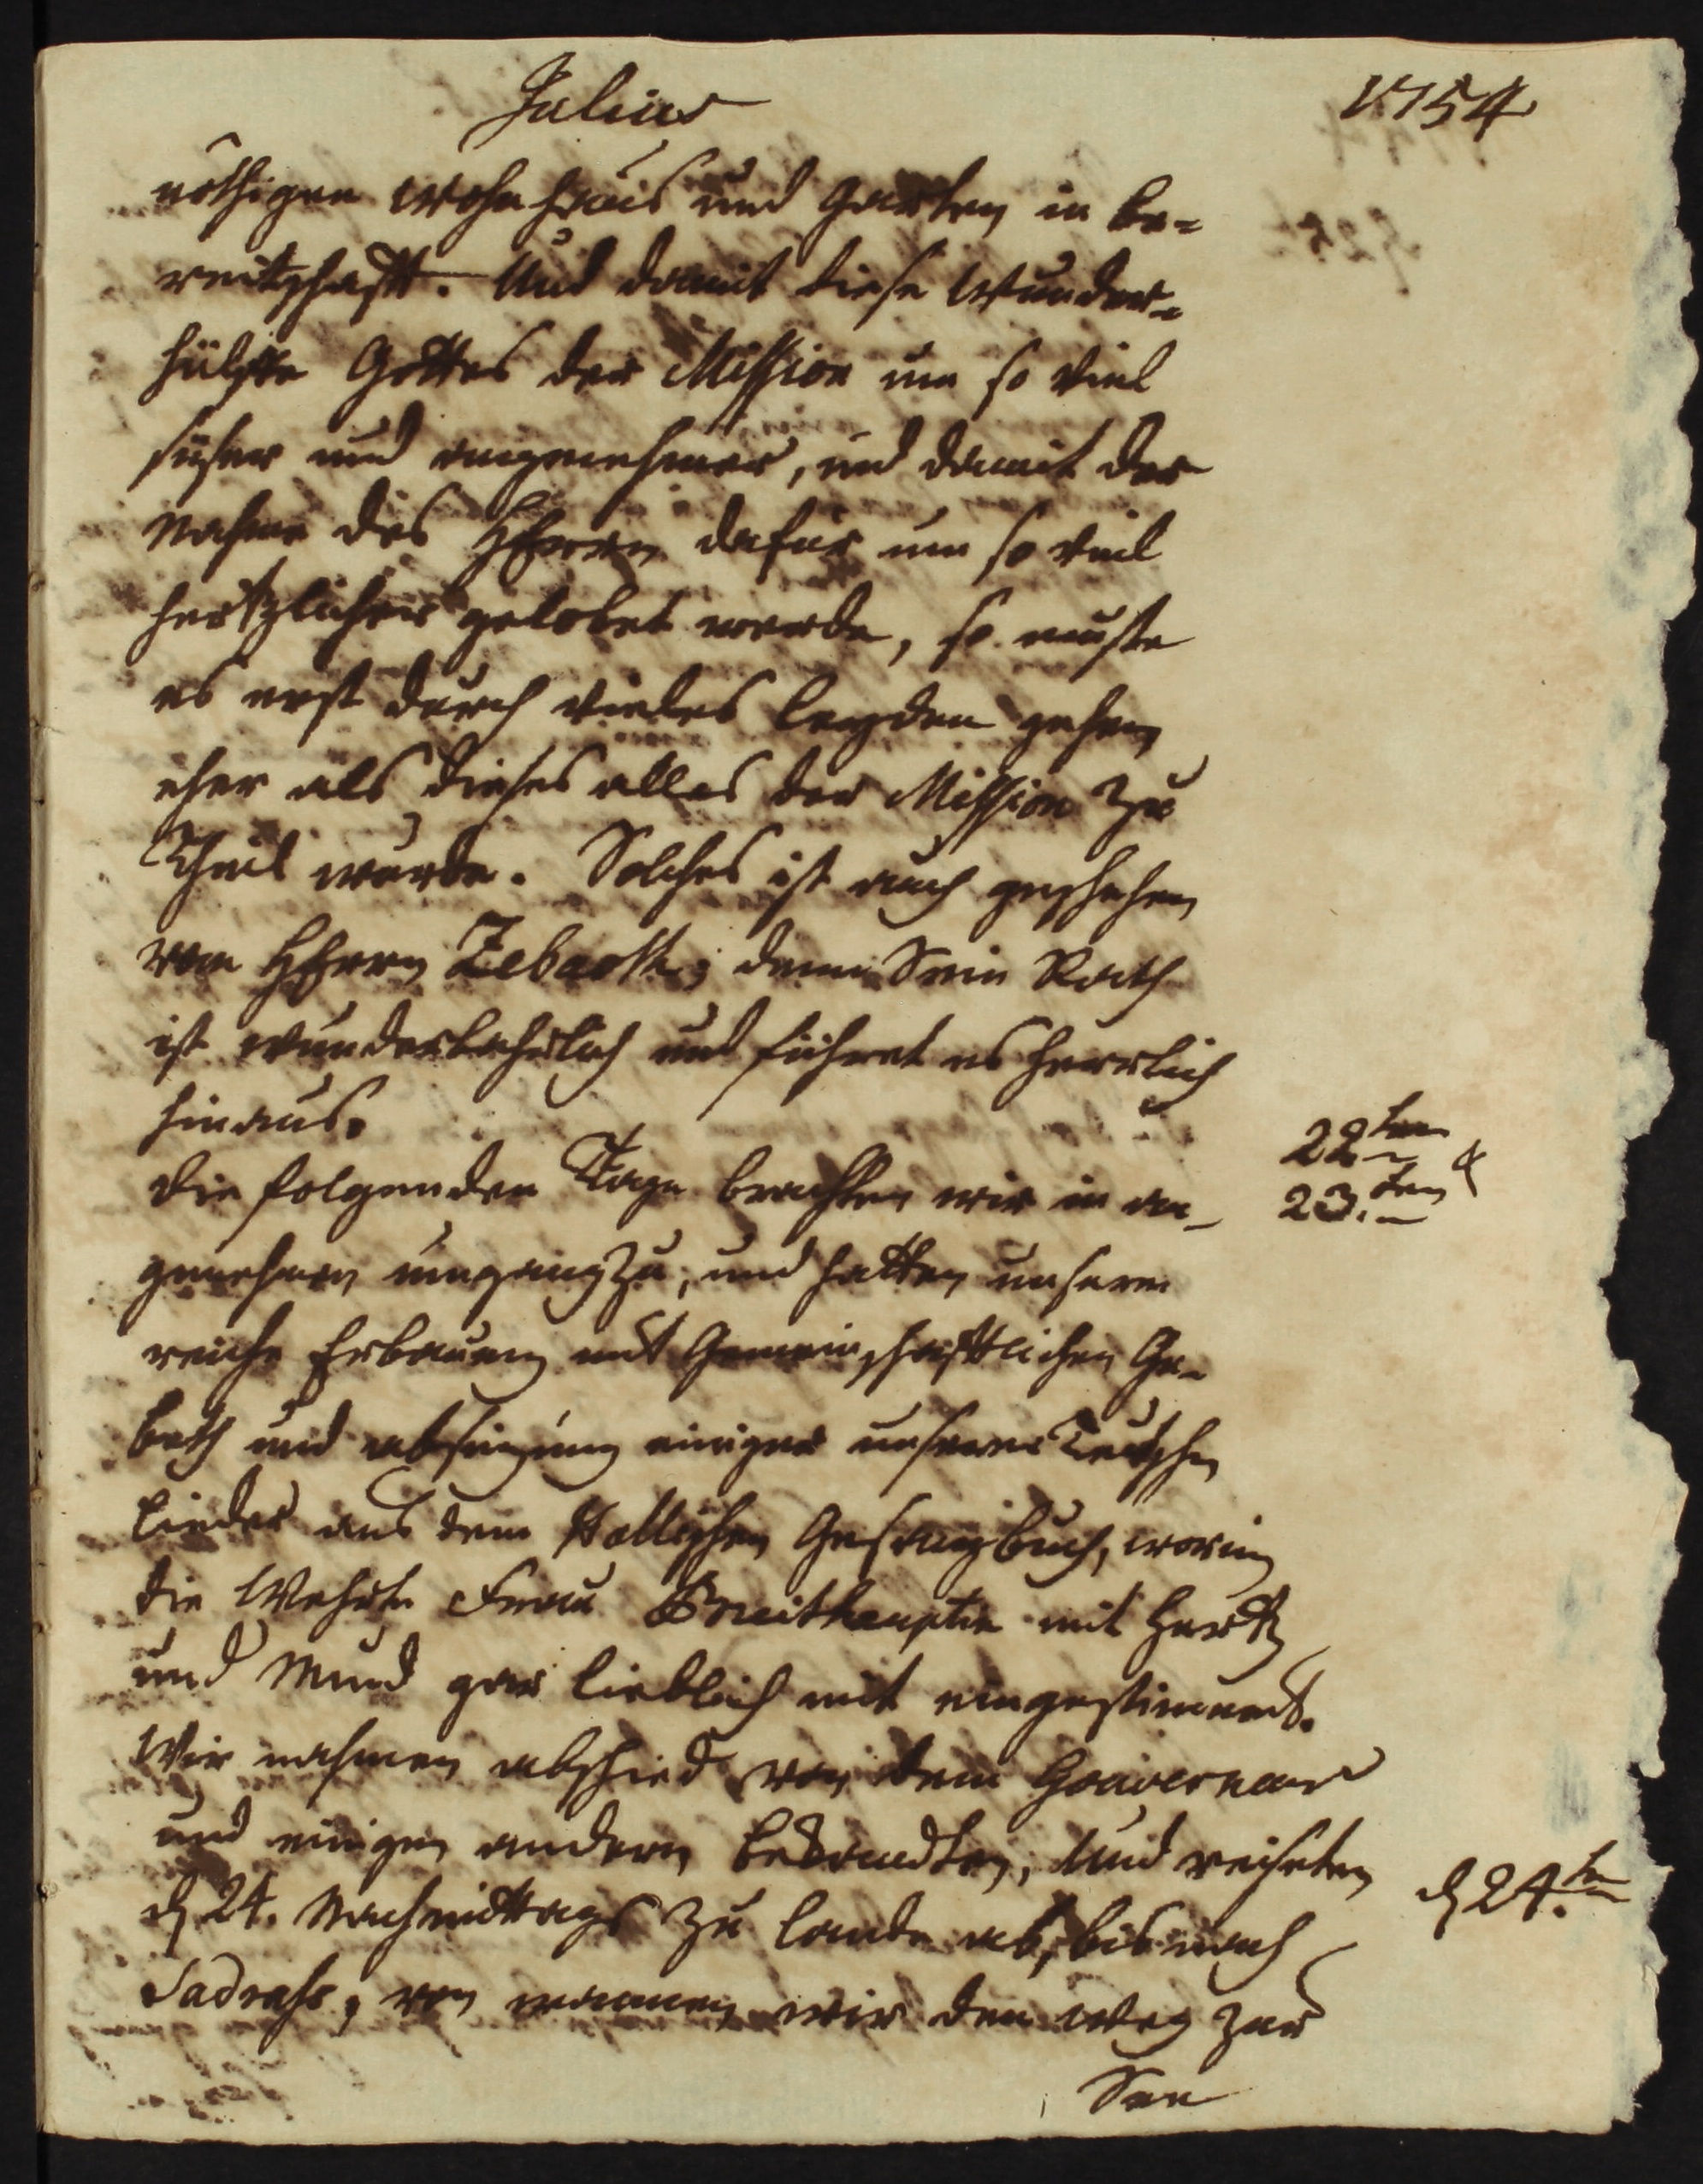 Julius
1754
nöthigen Wohnhaus und Garten in be-
reitschafft. Und damit diese Wunder-
hülffe Gottes der Mission um so viel
süser und angenehmer, und damit der
Nahme des HErrn dafür um so viel
hertzlicher gelobet werde, so muste
es erst durch vieles leyden gehen
eher als dieses alles der Mission zu
Theil wurde. Solches ist auch geschehen
vom HErrn Zebaoth; denn Sein Rath
ist wunderbahrlich und führet es herrlich
hinaus.
22ten &
23.ten
Die folgenden Tage brachten wir in an-
genehmen umgang zu, und hatten unsere
reiche Erbauung mit Gemeinschafftlichen Ge-
beth und absingung einiger unserer Teutschen
Lieder aus dem Hallischen Gesangbuch, worin
die Wehrte Frau Breithauptin mit Hertz
und Mund gar lieblich mit eingestimmet.
Wir nahmen abschied von dem Gouverneur
und einigen andern bekandten, Und reiseten
d 24.ten
d 24. Nachmittags zu lande ab, bis nach
Sadrass, von wannen wir den Weg zur
See